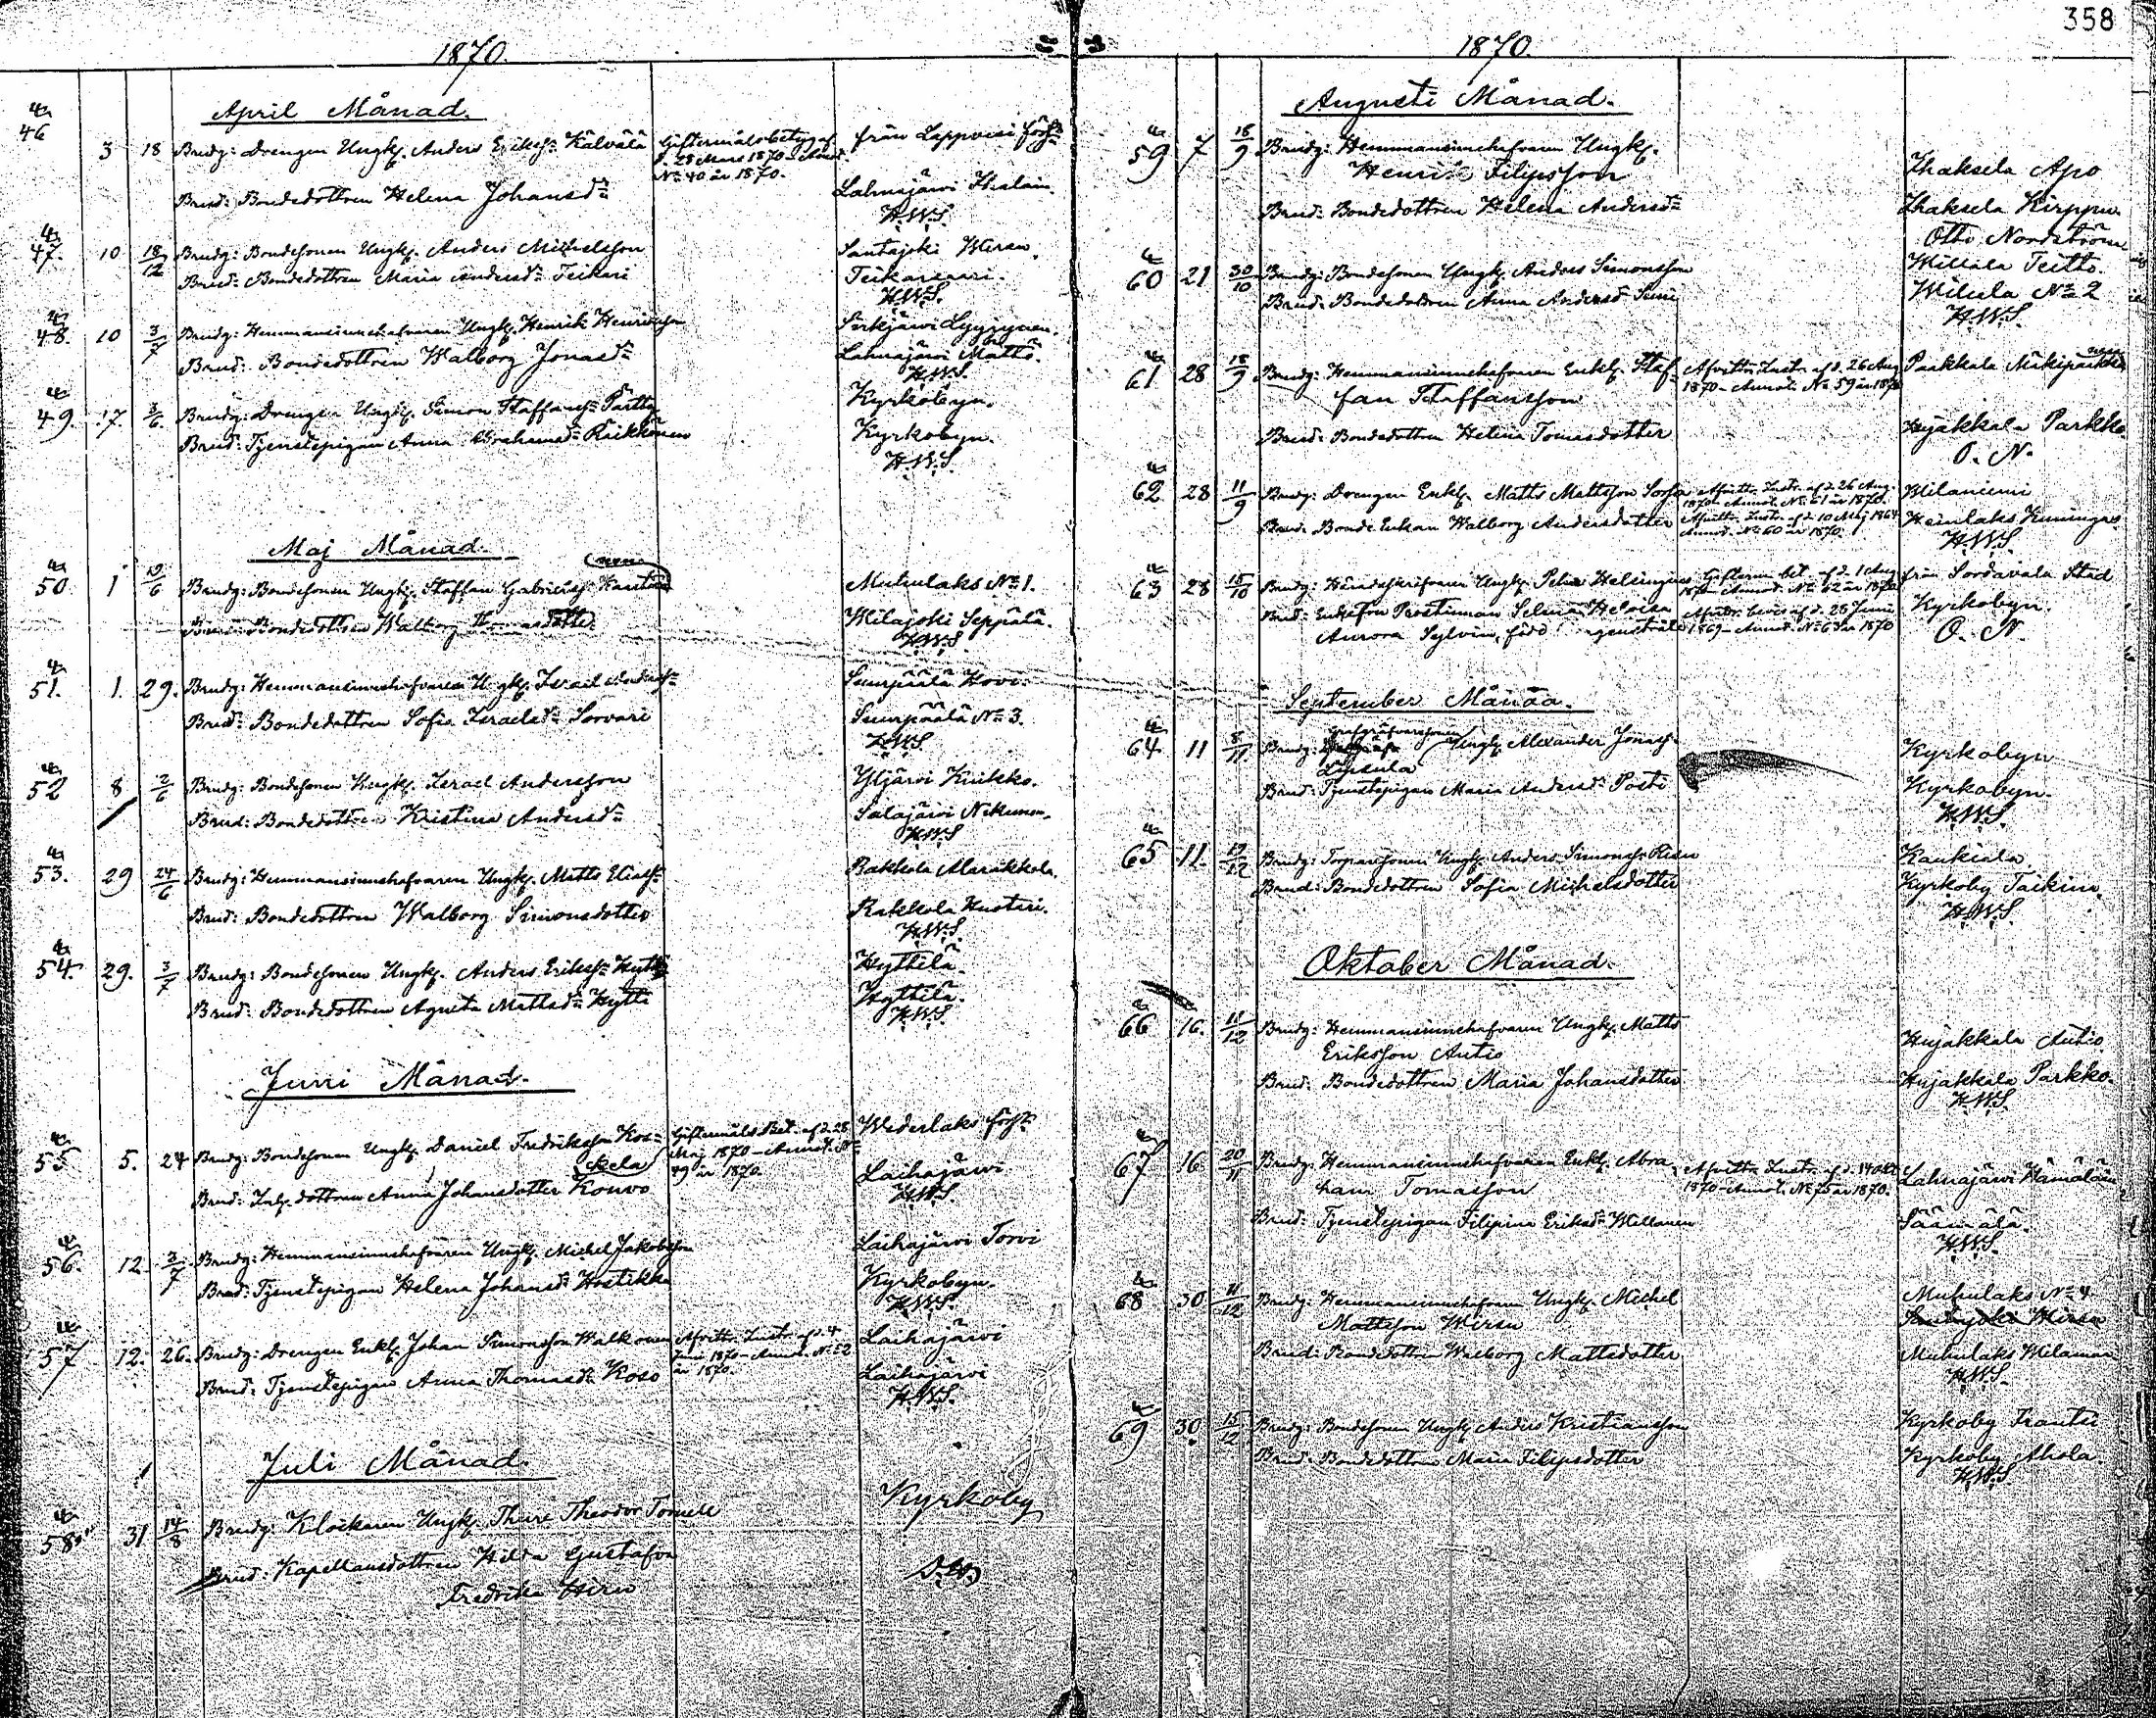 358
1870.
April Månad.
46
3 18 Brudg: Drengen Ungk. Anders Erikss: Kälvälä Giftermålsbetyg af d. 28 Mars 1870 – Annot. No 40 år 1870. från Leppvesi förs:
Brud: Bondedottren Helena Johansdr Lahnajärvi
H.W.S.
47. 10 18/12 Brudg: Bondesonen Ungk. Anders Michelsson Santajoki Wirsu
Brud: Bondedottren Maria Andersdr Teikari Teikarsaari.
H.W.S.
48. 10 3/7 Brudg: Hemmansinnehafvaren Ungk. Henrik Henriksson Sirkjärvi
Brud: Bondedottren Walborg Jonasdr Lahnajärvi Mattö.
H.W.S.
49. 17. 3/6. Brudg: Drengen Ungk. Simon Staffanss: Kyrkobyn.
Brud: Tjenstepigan Anna Abrahamsdr Räikkönen Kyrkobyn.
H.W.S.
Maj Månad.
50. 1 19/6 Brudg: Bondesonen Ungk. Staffan Gabrielss: Muhulaks No 1.
Brud: Bondedottren Walborg Thomasdotter Wilajoki Seppälä.
H.W.S.
51. 1. 29. Brudg: Hemmansinnehafvaren Ungk. Israel Anderss: Suurpäälä Hovi.
Brud: Bondedottren Sofia Israelsdr Sorvari Suurpäälä No 3.
H.W.S.
52 8 2/6 Brudg: Bondesonen Ungk. Israel Andersson Yljärvi Kuikko.
Brud: Bondedottren Kristina Andersdr Salajärvi
H.W.S
53. 29 24/6 Brudg: Hemmansinnehafvaren Ungk. Matts Eliass: Rakkola Marakkala
Brud: Bondedottren Walborg Simonsdotter Rakkola Husteri.
H.W.S
54. 29. 3/7 Brudg: Bondesonen Ungk. Anders Erikss: Hytti Hyttilä.
Brud: Bondedottren Agneta Mattsdr Hytti Hyttilä.
H.W.S
Juni Månad.
55 5. 24 Brudg: Bondesonen Ungk. Daniel Fredriksson Kos- Giftermåls Bet. af d. 28 Maj 1870 – Annot. No 49 år 1870. Wederlaks förs:
kela
Brud: Inh. dottren Anna Johansdotter Konvo Laihajärvi
H.W.S.
56. 12. 3/7 Brudg: Hemmansinnehafvaren Ungk. Michel Jakobsson Laihajärvi Torvi
Brud: Tjenstepigan Helena Johansdr Hostikka Kyrkobyn.
H.W.S.
57 12. 26. Brudg: Drengen Enkl. Johan Simonsson Walkonen Afvittr. Instr. af d. 4 Juni 1870 – Annot. No 52 år 1870. Laihajärvi
Brud: Tjenstepigan Anna Thomasdr Koso Laihajärvi
H.W.S.
Juli Månad.
58. 31 14/8 Brudg: Klockaren Ungk. Thure Theodor Tornell Kyrkoby
Brud: Kapellansdottren Hilda Gustafva
Fredrika Hirn
1870.
Augusti Månad.
59 7 18/9 Brudg: Hemmansinnehafvaren Ungk.
Henrik Filipsson Ihaksela Apo
Brud: Bondedottren Helena Andersdr Ihaksela Kirppu.
Otto Nordström
60 21 30/10 Brudg: Bondesonen Ungk. Anders Simonsson Willala Teitto.
Brud: Bondedottren Anna Andersdr No 2
H.W.S.
61 28 18/9 Brudg: Hemmansinnehafvaren Enkl. Staf- Afvittr. Instr. af d. 26 Aug 1870 – Annot. No 59 år 1870 Paakkala
fan Staffansson
Brud: Bondedottren Helena Tomasdotter Hujakkala Parkko
O. N.
62. 28 11/9 Brudg: Drengen Enkl. Matts Mattsson Sorsa Afvittr. Instr. af d. 26 Aug. 1870 – Annot. No 61 år 1870. Wilaniemi
Brud: Bonde Enkan Walborg Andersdotter Afvittr. Instr. af d. 10 Maj 1864 Annot. No 60 år 1870. Heinlaks Kuningas
H.W.S.
63 28 15/10 Brudg: Handskrifvaren Ungk. Peter Helsingius Gifterm. bet. af d. 1 Aug 1870 – Annot. No 62 år 1870 från Sordavala Stad
Brud: Enkefru Prostinnan Selma Heloisa Afvittr. bevis af d. 26 Juni 1869 – Annot. No 63 år 1870 Kyrkobyn.
Aurora Sylvin, född O. N.
September Månad.
64 11 8/11 Brudg: Ungk. Alexander Jonass: Kyrkobyn
Brud: Tjenstepigan Maria Andersdr Posti Kyrkobyn.
H.W.S.
65 11. Brudg: Torparesonen Ungk. Anders Simonss: Kaukiala.
Brud: Bondedottren Sofia Michelsdotter Kyrkoby Taikina
H.W.S.
Oktober Månad.
66 16. 11/12 Brudg: Hemmansinnehafvaren Ungk. Matts
Eriksson Autio Hujakkala Autio
Brud: Bondedottren Maria Johansdotter Hujakkala Parkko.
H.W.S.
67 16 20/11 Brudg: Hemmansinnehafvaren Enkl. Abra- Afvittr. Instr. af d. 14 Okt 1870 – Annot. No 75 år 1870.
ham Tomasson Lahnajärvi Hämäläin
Brud: Tjenstepigan Filipina Eriksdr Wellonen Säämälä.
H.W.S.
68 30 11/12 Brudg: Hemmansinnehafvaren Ungk. Michel Muhulaks No 4
Mattsson Wirsu Santajoki Wirsu
Brud: Bondedottren Walborg Mattsdotter Muhulaks
H.W.S.
69 30. 15/12 Brudg: Bondesonen Ungk. Anders Kristiansson Kyrkoby Frantsi
Brud: Bondedottren Maria Filipsdotter Kyrkoby Ahola
H.W.S